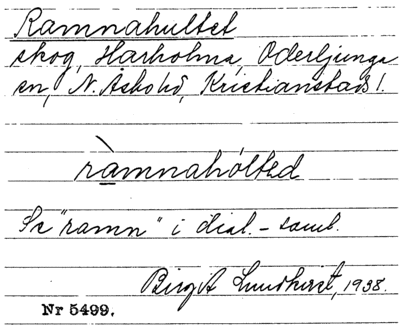 Ramnahultet
skog, Harholma, Oderljunga
sn, N. Åsbo hd, Kristianstads l.
ràmnahólted
Se "ramn" i dial.-saml.
Birgit Lundkvist, 1938.
Nr 5499.